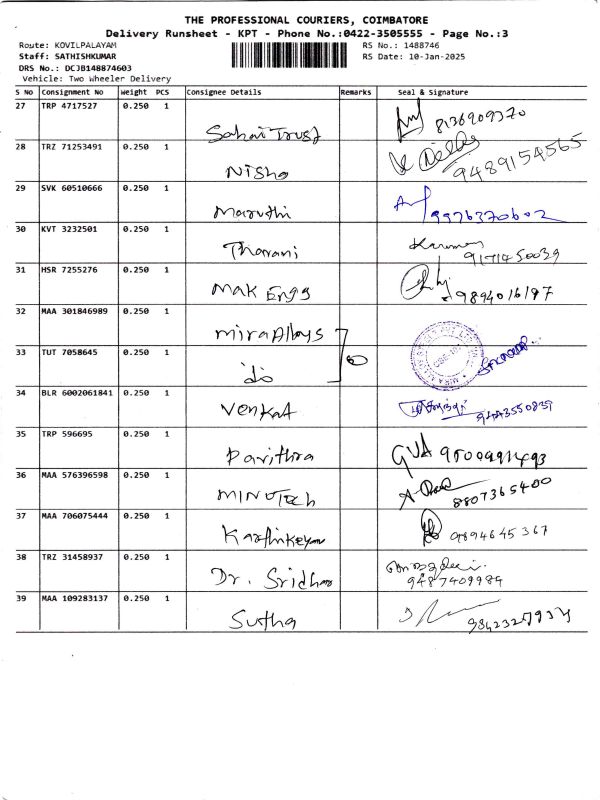 THE PROFESSIONAL COURIERS, COIMBATORE
Delivery Runsheet - KPT - Phone No.:0422-3505555 - Page No.:3
Route: KOVILPALAYAM RS No.: 1488746
Staff: SATHISHKUMAR RS Date: 10-Jan-2025
DRS No.: DCJB148874603
Vehicle: Two Wheeler Delivery
S NO Consignment No Weight PCS Consignee Details Remarks Seal & Signature
27 TRP 4717527 0.250 1 Sahai Trust 8136909370
28 TRZ 71253491 0.250 1 Nisha 9489154565
29 SVK 60510666 0.250 1 Maruthi 9976370602
30 KVT 3232501 0.250 1 Tharani 9171450039
31 HSR 7255276 0.250 1 Mak Engg 9894016197
32 MAA 301846989 0.250 1 Mira Alloys
33 TUT 7058645 0.250 1 do
34 BLR 6002061841 0.250 1 Venkat 9443550839
35 TRP 596695 0.250 1 Pavithra
36 MAA 576396598 0.250 1 MINUTech 8807365400
37 MAA 706075444 0.250 1 Karthikeyan 9894645367
38 TRZ 31458937 0.250 1 Dr. Sridhar 9487409984
39 MAA 109283137 0.250 1 Sutha